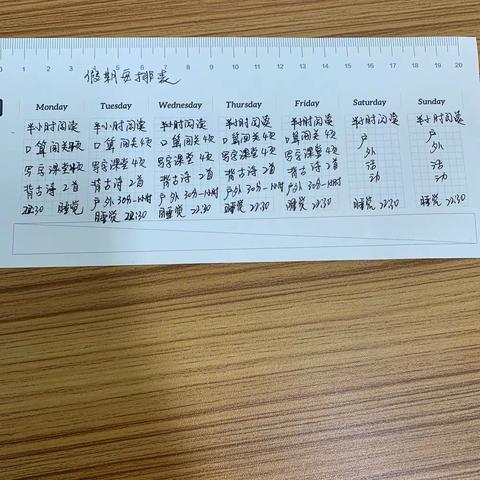 0 1 2 3 4 5 6 7 8 9 10 11 12 13 14 15 16 17 18 19 20
假期安排表
Monday Tuesday Wednesday Thursday Friday Saturday Sunday
半小时阅读 半小时阅读 半小时阅读 半小时阅读 半小时阅读 半小时阅读 半小时阅读
口算闯关4次 口算闯关4次 口算闯关4次 口算闯关4次 口算闯关4次 户 户
写字课堂4次 写字课堂4次 写字课堂4次 写字课堂4次 写字课堂4次 外 外
背古诗2首 背古诗2首 背古诗2首 背古诗2首 背古诗2首 活 活
户外30分-1小时 户外30分-1小时 户外30分-1小时 户外30分-1小时 动 动
22:30 睡觉 睡觉 22:30 睡觉 22:30 睡觉 22:30 睡觉 22:30 睡觉 22:30 睡觉 22:30